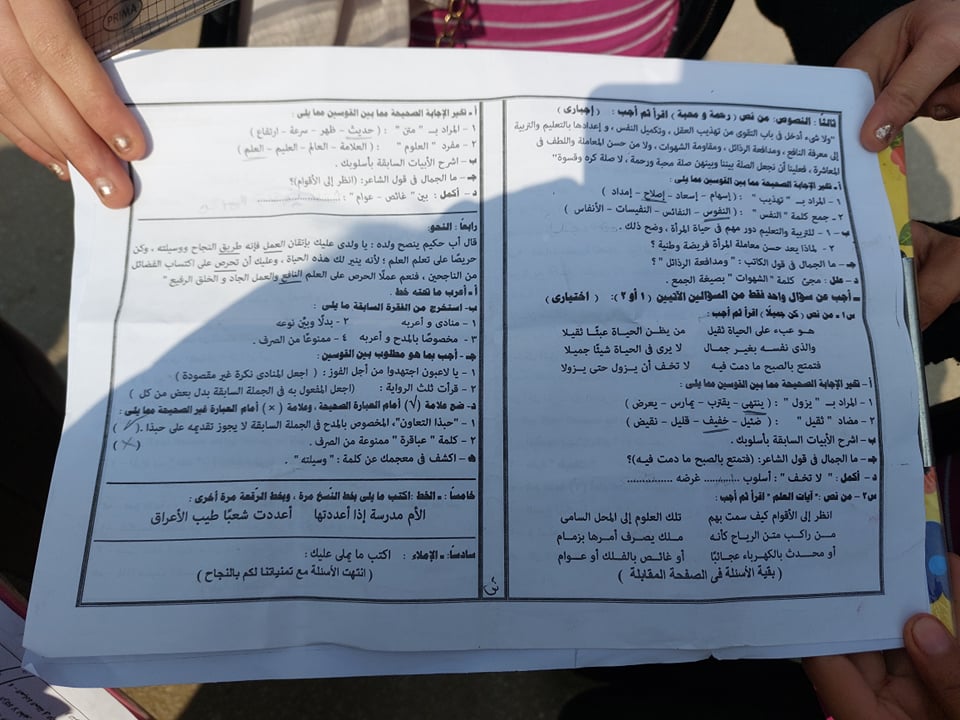 ثالثًا : النصوص: من نص ( رحمة و محبة ) اقرأ ثم أجب : ( إجبارى )
"ولا شىء أدخل فى باب التقوى من تهذيب العقل ، وتكميل النفس ، و إعدادها بالتعليم والتربية
إلى معرفة النافع ، ومدافعة الرذائل ، ومقاومة الشهوات ، ولا من حسن المعاملة واللطف فى
المعاشرة ، فعلينا أن نجعل الصلة بيننا وبينهن صلة محبة ورحمة ، لا صلة كره وقسوة"
أ - تخير الإجابة الصحيحة مما بين القوسين مما يلى :
١ - المراد بـ " تهذيب " : ( إسهام - إسعاد - إصلاح - إمداد )
٢ - جمع كلمة " النفس " : ( النفوس - النفائس - النفيسات - الأنفاس )
ب - ١ - للتربية والتعليم دور مهم فى حياة المرأة ، وضح ذلك .
٢ - لماذا يعد حسن معاملة المرأة فريضة وطنية ؟
جـ - ما الجمال فى قول الكاتب : " ومدافعة الرذائل " ؟
د - علل : مجئ كلمة " الشهوات " بصيغة الجمع .
ــ أجب عن سؤال واحد فقط من السؤالين الآتيين ( ١ أو ٢ ) : ( اختيارى )
س١ - من نص ( كن جميلًا ) اقرأ ثم أجب :
هـو عبء على الحياة ثقيل من يظـن الحيـاة عبئًـا ثقيـلا
والذى نفسـه بغيـر جمـال لا يرى فى الحياة شيئًا جميـلا
فتمتع بالصبح ما دمت فيـه لا تخـف أن يـزول حتى يـزولا
أ - تخير الإجابة الصحيحة مما بين القوسين مما يلى :
١ - المراد بـ " يزول " : ( ينتهى - يقترب - يمارس - يعرض )
٢ - مضاد " ثقيل " : ( ضئيل - خفيف - قليل - نقيض )
ب - اشرح الأبيات السابقة بأسلوبك .
جـ - ما الجمال فى قول الشاعر: (فتمتع بالصبح ما دمت فيـه)؟
د - أكمل : " لا تخـف " : أسلوب ............ غرضه ...............
س٢ - من نص : " آيات العلم " اقرأ ثم أجب :
انظر إلى الأقوام كيف سمت بهم تلك العلوم إلى المحل السامى
مـن راكـب متـن الريـاح كأنـه مـلك يصـرف أمـرها بزمـام
أو محـدث بالكهربـاء عجائبًـا أو غائـص بالفـلك أو عـوام
( بقية الأسئلة فى الصفحة المقابلة )
أ - تخير الإجابة الصحيحة مما بين القوسين مما يلى :
١ - المراد بـ " متن " : ( حديث - ظهر - سرعة - ارتفاع )
٢ - مفرد " العلوم " : ( العلامة - العالم - العليم - العلم )
ب - اشرح الأبيات السابقة بأسلوبك .
جـ - ما الجمال فى قول الشاعر: (انظر إلى الأقوام)؟
د - أكمل : بين " غائص - عوام " : ........................
رابعًا : النحو:
قال أب حكيم ينصح ولده : يا ولدى عليك بإتقان العمل فإنه طريق النجاح ووسيلته ، وكن
حريصًا على تعلم العلم ؛ لأنه ينير لك هذه الحياة ، وعليك أن تحرص على اكتساب الفضائل
من الناجحين ، فنعم عملًا الحرص على العلم النافع والعمل الجاد و الخلق الرفيع "
أ - أعرب ما تحته خط .
ب - استخرج من الفقرة السابقة ما يلى :
١ - منادى و أعربه ٢ - بدلًا وبيِّن نوعه
٣ - مخصوصًا بالمدح و أعربه ٤ - ممنوعًا من الصرف .
جـ - أجب بما هو مطلوب بين القوسين :
١ - يا لاعبون اجتهدوا من أجل الفوز : ( اجعل المنادى نكرة غير مقصودة )
٢ - قرأت ثلث الرواية : (اجعل المفعول به فى الجملة السابقة بدل بعض من كل )
د - ضع علامة ( √ ) أمام العبارة الصحيحة ، وعلامة ( × ) أمام العبارة غير الصحيحة مما يلى :
١ - "حبذا التعاون"، المخصوص بالمدح فى الجملة السابقة لا يجوز تقديمه على حبذا . ( √ )
٢ - كلمة " عباقرة " ممنوعة من الصرف . ( × )
هـ - اكشف فى معجمك عن كلمة : " وسيلته " .
خامسًا : ـ الخط : اكتب ما يلى بخط النسخ مرة ، وبخط الرقعة مرة أخرى :
الأم مدرسة إذا أعددتها أعددت شعبًا طيب الأعراق
سادسًا : ـ الإملاء : اكتب ما يملى عليك :
( انتهت الأسئلة مع تمنياتنا لكم بالنجاح )
PRIMA